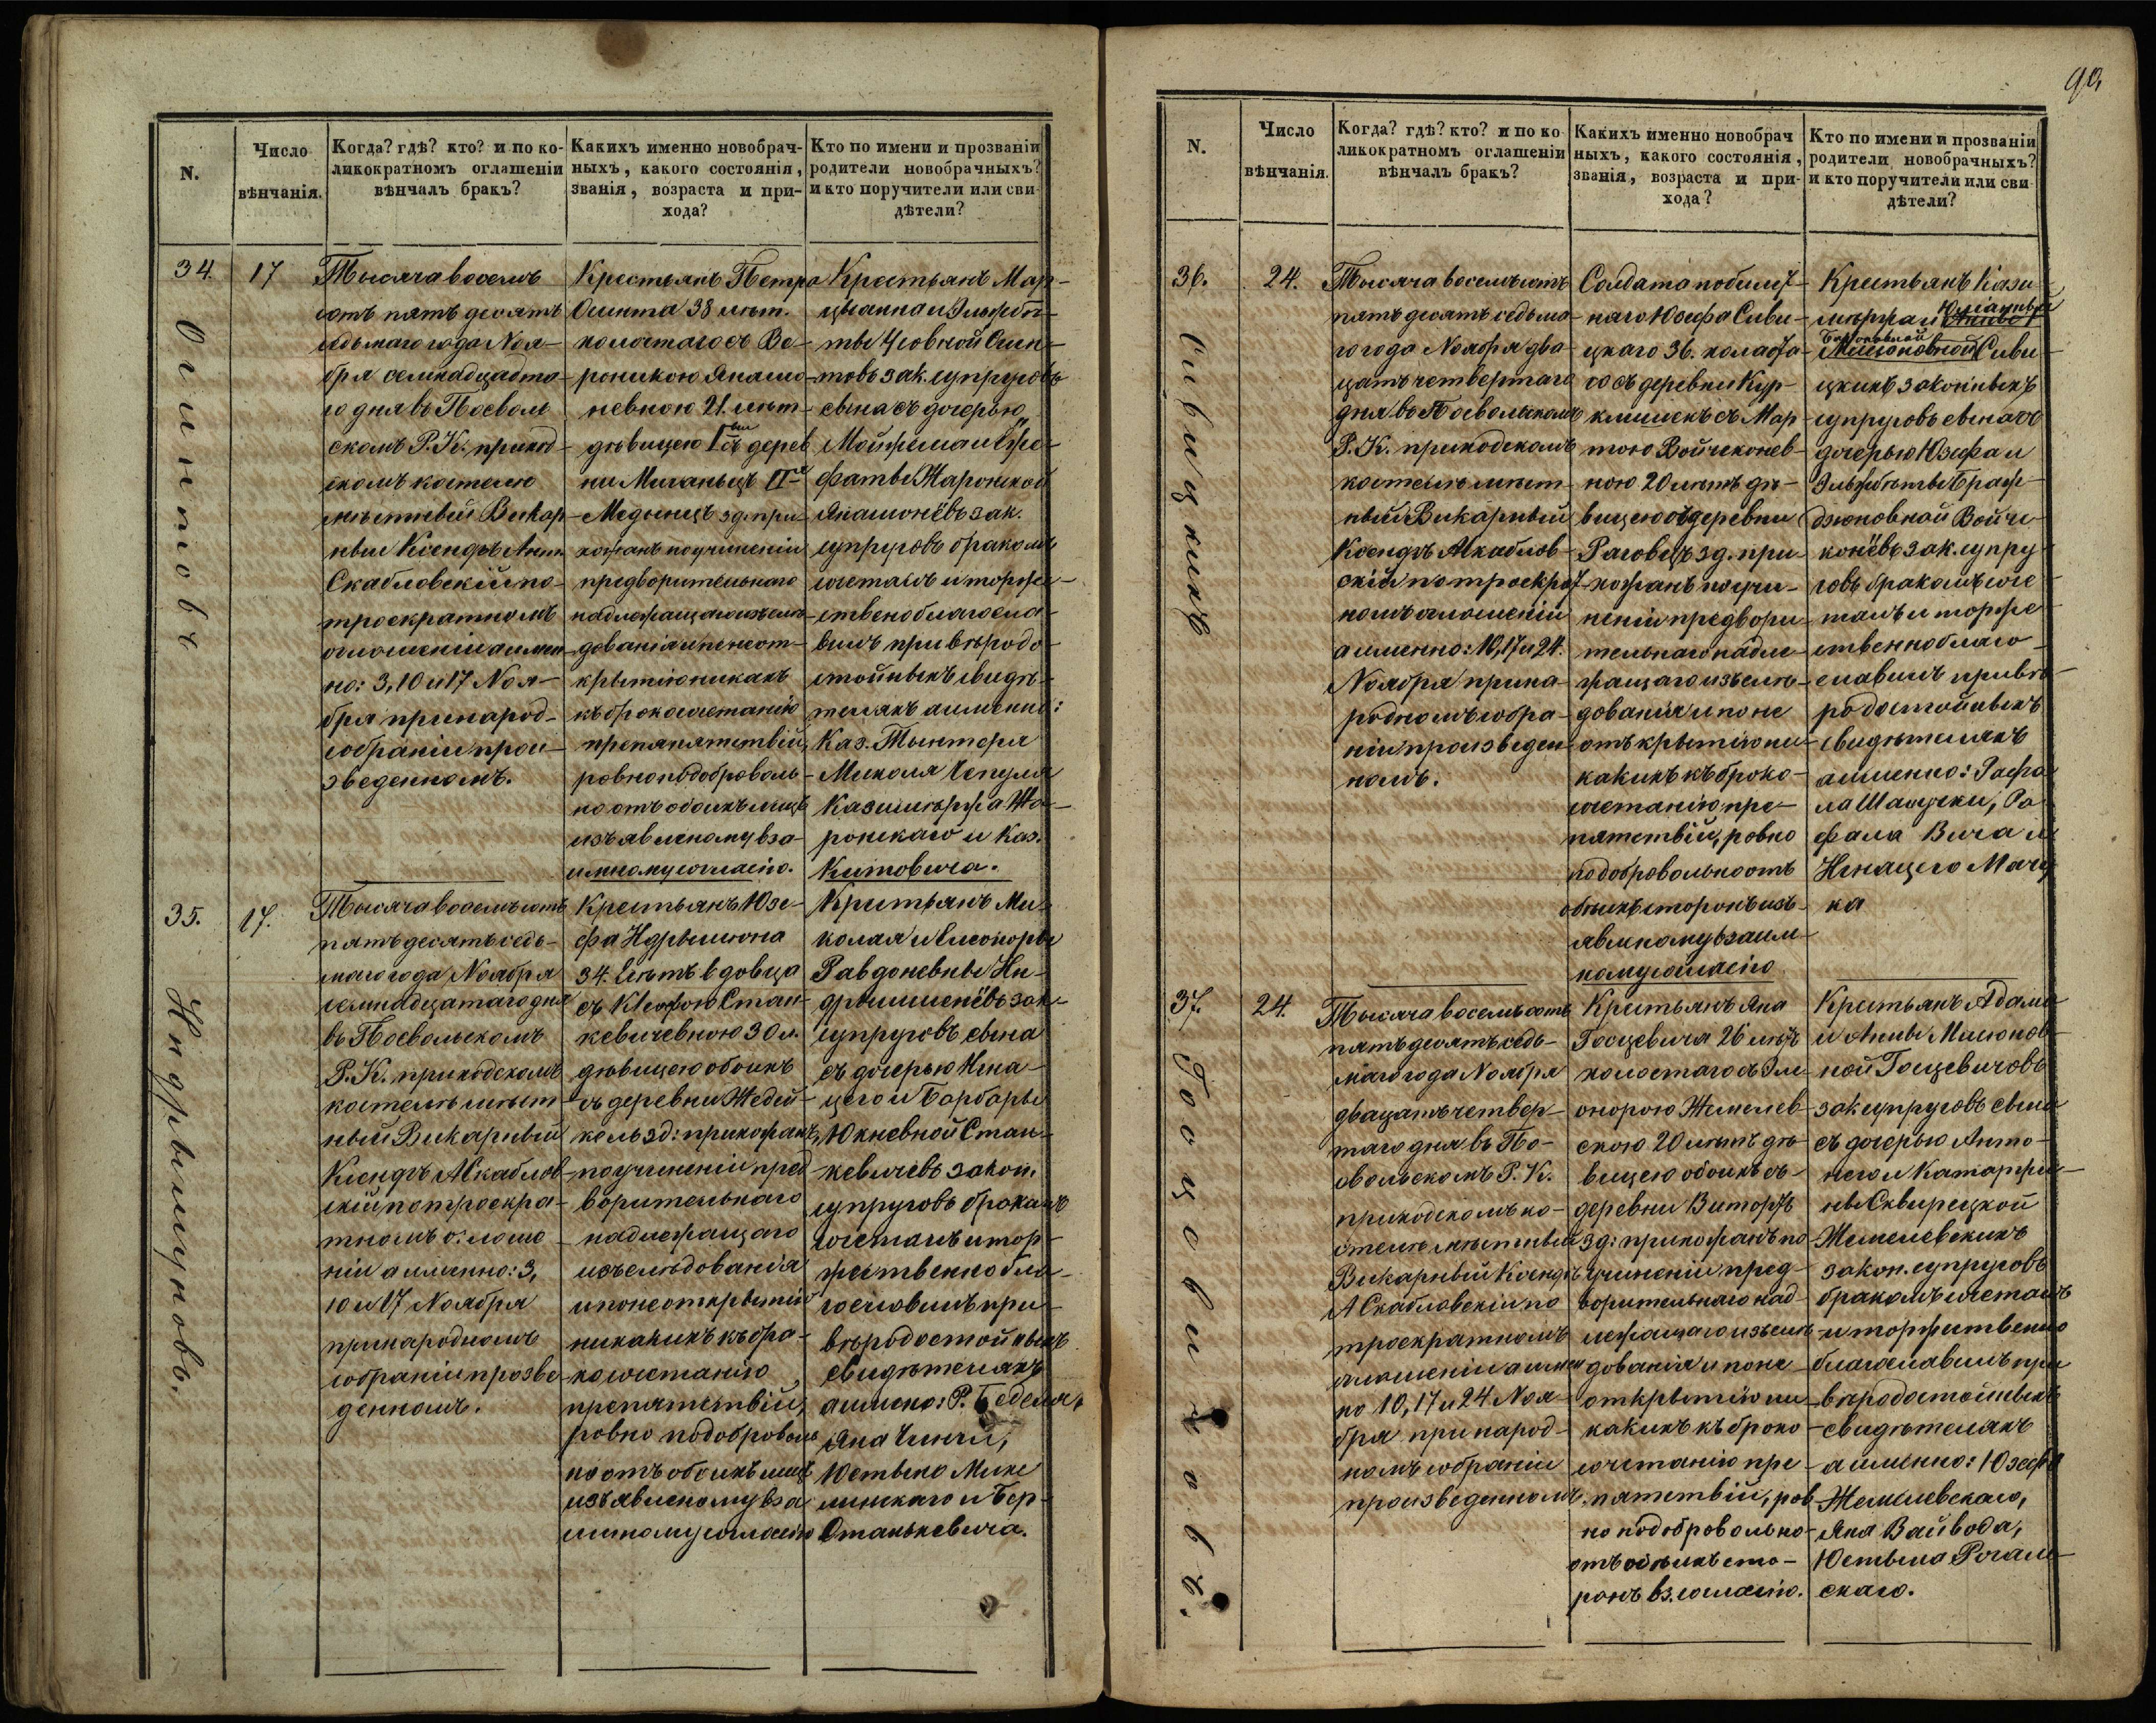 N.
Число
вѣнчанія.
Когда? гдѣ? кто? и по ко-
ликократномъ оглашеніи
вѣнчалъ бракъ?
Какихъ именно новобрач-
ныхъ, какого состоянія,
званія, возраста и при-
хода?
Кто по имени и прозванію
родители новобрачныхъ?
и кто поручители или сви-
дѣтели?
34.
17
Тысяча восемь
сотъ пять десятъ
седьмаго года Ноя-
бря семнадцата-
го дня въ Посволь
скомъ Р. К. приход-
скомъ костелѣ
мѣстный Викар-
ный Ксендзъ Ант.
Скабловскій по
троекратномъ
оглошеніи а имен
но: 3, 10 и 17 Ноя-
бря при народ-
собраніи прои-
зведенномъ.
Крестьянъ Петра
Осинта 38 лѣт.
холостаго съ Ве-
роникою Янамо-
невною 21. лѣт
дѣвицею съ дерев
ни
хожанъ по учиненіи
предворительнаго
надлежащаго изъслѣ
дованія и по неот-
крытію никакъ
къ бракосочетанію
препятствій,
ровно по доброволь-
но отъ обоихъ лицъ
изъявленому вза-
имному согласію.
Крестьянъ Мар-
товъ зак. супруговъ
сына съ дочерью
супруговъ бракомъ
сочеталъ и торже-
ствено благосла-
вилъ при вѣродо-
стойныхъ свидѣ-
теляхъ а именно:
Каз. Тынтеря
Миколя Чепуля
Казимѣржа Жа-
ронскаго и Каз.
Китовича.
35.
17.
Тысяча восемь сотъ
пять десятъ седь-
маго года Ноября
семнадцатаго дня
въ Посвольскомъ
Р. К. приходскомъ
костелѣ мѣст-
ный Викарный
Ксендзъ А Скаблов
скій по троекра-
тномъ оглоше
ніи а именно: 3,
10 и 17 Ноября
при народномъ
собраніи прозве-
денномъ.
Крестьянъ Юзе-
фа Ндрышона
34. лѣтъ вдовца
съ Стан-
кевичевною 30 л.
дѣвицею обоихъ
съ деревни Жедей-
кель зд: прихожанъ,
по учиненіи пред
ворительнаго
надлежащаго
изъслѣдованія
и по неоткрытію
никакихъ къ бра-
косочетанію
препятствій,
ровно по доброволь
но отъ обоихъ лицъ
изъявленому вза
имному согласію
Крестьянъ Ми-
колая и Елеоноры
зак.
супруговъ сына
съ дочерью Игна-
цего и Барбары
Юхневной Стан-
кевичевъ закон.
супруговъ бракомъ
сочеталъ и тор-
жественно бла-
гословилъ при
вѣродостойныхъ
свидѣтеляхъ
а имено: Р. Беделя,
Яна Чинчи,
Юстына Мике
линскаго и Бер.
Станькевича.
90.
N.
Число
вѣнчанія.
Когда? гдѣ? кто? и по ко
ликократномъ оглашеніи
вѣнчалъ бракъ?
Какихъ именно новобрач
ныхъ, какого состоянія,
званія, возраста и при-
хода?
Кто по имени и прозваніи
родители новобрачныхъ?
и кто поручители или сви-
дѣтели?
36.
24.
Сивицкихъ
Тысяча восемь сотъ
пять десятъ седьма
го года Ноября два
цать четвертаго
дня въ Посвольскомъ
Р. К. приходскомъ
костелѣ мѣст-
ный Викарный
Ксендзъ А Скаблов-
скій по троекрат-
номъ оглошеніи
а именно: 10, 17 и 24.
Ноября при на-
родномъ собра-
ніи произведен-
номъ.
Солдата по билет-
наго Юзефа Сиви-
цкаго 36. холоста-
го съ деревни Кур-
клишекъ съ Мар-
тою Войчконев-
ною 20 лѣтъ дѣ-
вицею съ деревни
зд. при-
хожанъ по учи-
неніи предвори-
тельнаго надле-
жащаго изъслѣ-
дованія и по не
отъкрытію ни-
какихъ къ брако-
сочетанію пре-
пятствій, ровно
по добровольно отъ
обѣихъ сторонъ изъ-
явленому взаим-
ному согласію
Крестьянъ Кази-
мѣржа и Юліанны
Сиви-
цкихъ законныхъ
супруговъ сына съ
дочерью Юзефа и
Эльжбѣты Браж-
дзюновной Войч-
конёвъ зак. супру-
говъ бракомъ соче
талъ и торже
ственно благо-
славилъ при вѣ-
родостойныхъ
свидѣтеляхъ
а именно: Рафа
ла Шалучки, Ра
фала Вича и
Игнацего Мачу
ка
37.
24.
Госцевичовъ.
Тысяча восемь сотъ
пять десятъ седь-
маго года Ноября
двацать четвер-
таго дня въ По-
свольскомъ Р. К.
приходскомъ ко-
стелѣ мѣстный
Викарный Ксендзъ
А Скабловскій по
троекратномъ
оглошеніи а имен
но 10, 17 и 24 Ноя-
бря при народ-
номъ собраніи
произведенномъ.
Крестьянъ Яна
Госцевича 26 лѣтъ
холостаго съ Эле
онорою Жмелев-
скою 20 лѣтъ дѣ-
вицею обоихъ съ
деревни
зд: прихожанъ по
учиненіи пред-
ворительнаго над-
лежащаго изъслѣ
дованія и по не
открытію ни-
какихъ къ брако-
сочетанію пре-
пятствій, ров
но по добровольно
отъ обѣихъ сто-
ронъ вз. согласію.
Крестьянъ Адама
и Анны Милюнов-
ной Госцевичовъ
зак супруговъ сына
съ дочерью Анто-
него и Катаржи-
ны Сквирецкой
Жмелевскихъ
закон. супруговъ
бракомъ сочеталъ
и торжественно
благославилъ при
вѣродостойныхъ
свидѣтеляхъ
а именно: Юзефа
Жмелевскаго,
Яна Вайвода,
Юстына Рогале-
скаго.